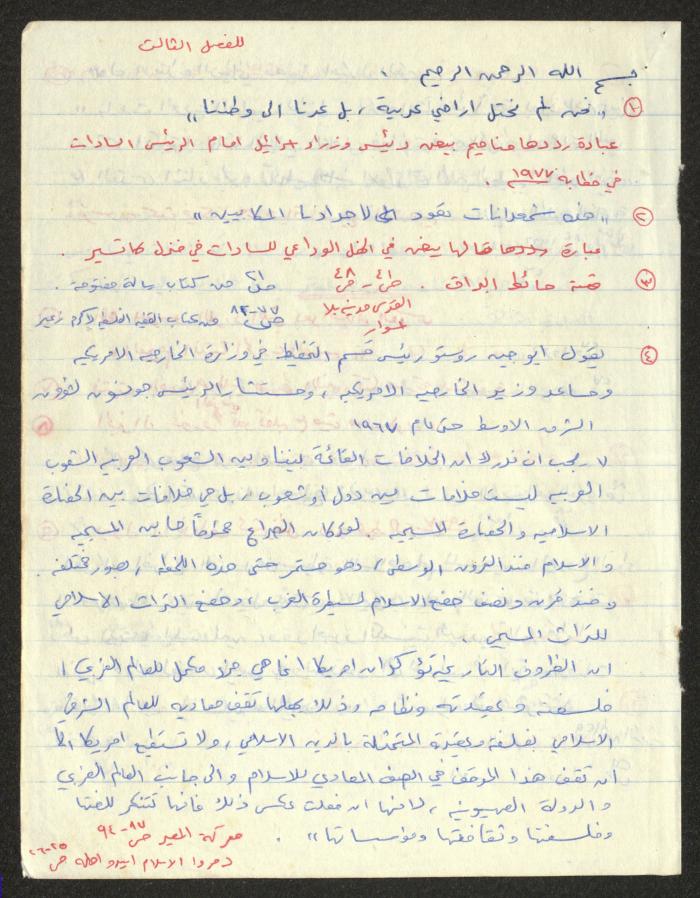 للفصل الثالث
بسم الله الرحمن الرحيم .
١ "نحن لم نحتل اراضي عربية ، بل عدنا الى وطننا"
عبارة رددها مناحيم بيغن رئيس وزراء اسرائيل امام الرئيس السادات
في خطابه ١٩٧٧ .
٢ "هذه شمعدانات تعود الى لاجدادنا المكابيين"
عبارة رددها هالها بيغن في الحفل الوداعي للسادات في منزل كاتسير .
٣ قصة حائط البراق . ص٤٠ - ص٤٨ ص٢١ من كتاب رسالة مفتوحة .
القدس مدينة بلا اسوار ص ٧٧-٨٢ من كتاب القضية الفلسطينية لاكرم زعيتر
٤ يقول ايوجين روستو رئيس قسم التخطيط في وزارة الخارجية الامريكية
ومساعد وزير الخارجية الامريكية ، ومستشار الرئيس جونسون لشؤون
الشرق الاوسط حتى عام ١٩٦٧
"يجب ان ندرك ان الخلافات القائمة بيننا وبين الشعوب العربية الشعوب
العربية ليست خلافات بين دول او شعوب ، بل هي خلافات بين الحضارة
الاسلامية والحضارة المسيحية . لقد كان الصراع محتدماً ما بين المسيحية
والاسلام منذ القرون الوسطى ، وهو مستمر حتى هذه اللحظة ، بصور مختلفة .
ومنذ قرن ونصف خضع الاسلام لسيطرة الغرب ، وخضع التراث الاسلامي
للتراث المسيحي .
ان الظروف التاريخية تؤكد ان امريكا انما هي جزء مكمل للعالم الغربي ،
فلسفته وعقيدته ونظامه وذلك يجعلها تقف معادية للعالم الشرقي
الاسلامي بفلسفته وعقيدته المتمثلة بالدين الاسلامي ، ولا تستطيع امريكا الا
ان تقف هذا الموقف في الصف المعادي للاسلام والى جانب العالم الغربي
والدولة الصهيونية ، لانها ان فعلت عكس ذلك فانها تتنكر للغتها
وفلسفتها وثقافتها ومؤسساتها" .
معركة المصير ص ٨٧-٩٤
دمروا الاسلام ابيدوا اهله ص ٢٥-٢٦